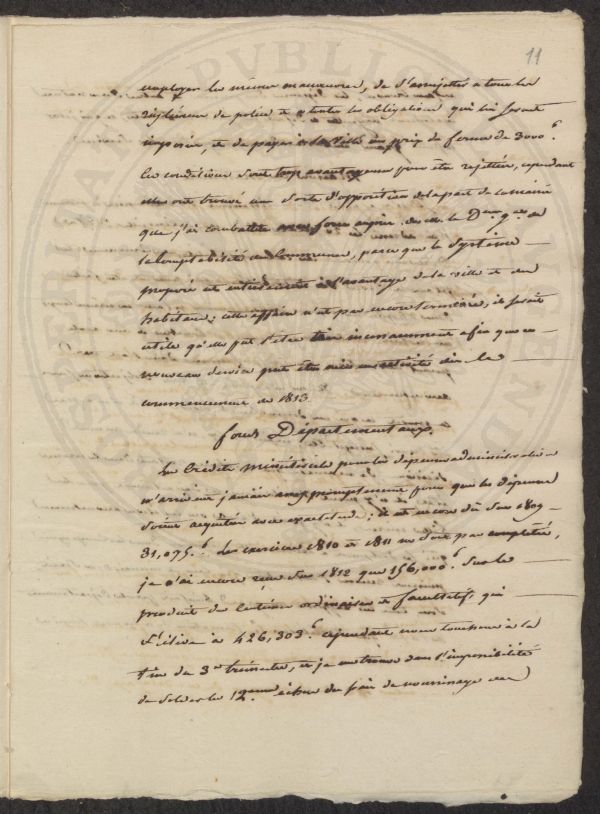 11
employer les mêmes manœuvres, de s'assujettir à tous les
règlemens de police et à toutes les obligations qui lui seront
imposées, et de payer à la Ville un prix de ferme de 3000.f
les conditions sont trop avantageuses pour être rejettées, cependant
elles ont trouvé une sorte d'opposition de la part de la mairie
que j'ai combattue
la comptabilité des Communes, parce que le Système
proposé est entièrement à l'avantage de la ville et des
habitans; cette affaire n'est pas encore terminée, il serait
utile qu'elle put l'être très incessamment afin que ce
nouveau service put être mis en activité dès le
commencement de 1813.
fonds Départementaux.
Les Crédits ministériels pour les dépenses administratives
n'arrivent jamais assez promptement pour que les dépenses
soient acquittées avec exactitude; il est encore dû sur 1809
31,075.f Les exercices 1810 et 1811 ne sont pas complétés,
je n'ai encore reçu sur 1812 que 156,000.f sur le
produit des Centimes ordinaires et facultatifs, qui
s'élève à 426,303.f cependant nous touchons à la
fin du 3e trimestre, et je me trouve dans l'impossibilité
de solder le 2eme échu des frais de nourrissage des